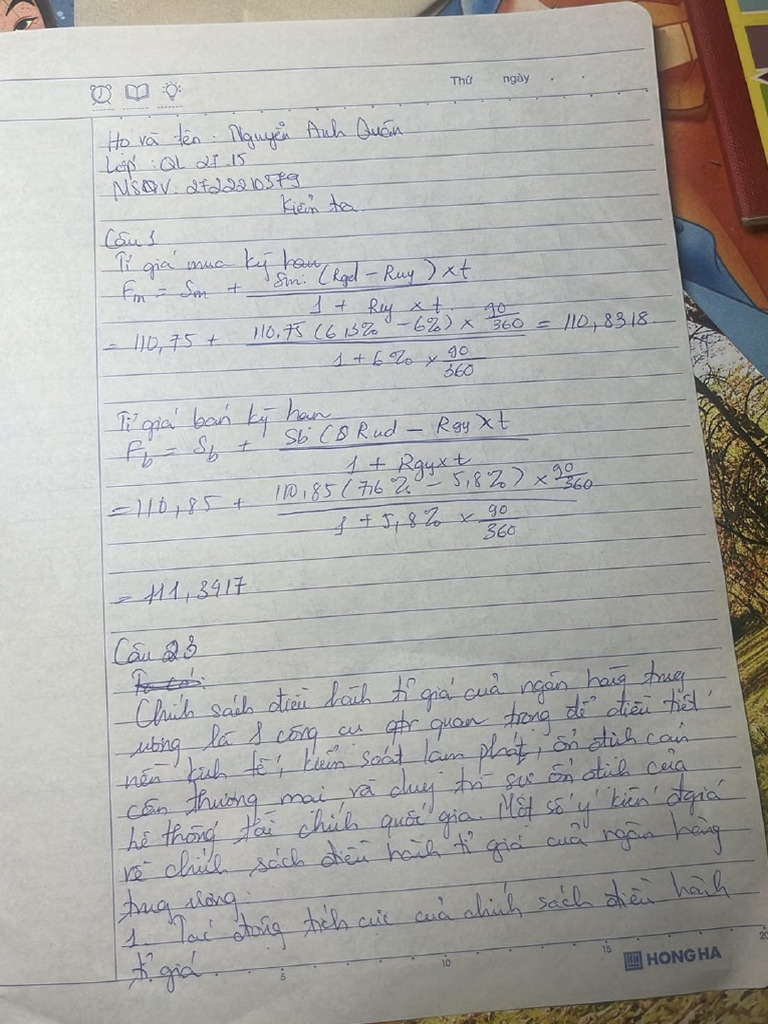 Thứ ngày . .
Họ và tên : Nguyễn Anh Quân
Lớp : QL 27.15
MSQV. 2722210379
Kiểm tra
Câu 1
Tỉ giá mua kỳ hạn
Fm = Sm + Sm. (Rgd - Ruy) x t
1 + Ruy x t
= 110,75 + 110,75 (6,3% - 6%) x 90/360 = 110,8318
1 + 6% x 90/360
Tỉ giá bán kỳ hạn
Fb = Sb + Sb (Rud - Rgy x t
1 + Rgy x t
= 110,85 + 110,85 (7,6% - 5,8%) x 90/360
1 + 5,8% x 90/360
= 111,3417
Câu 23
Chính sách điều hành tỉ giá của ngân hàng trung
ương là 1 công cụ quan trọng để điều tiết
nền kinh tế, kiểm soát lạm phát, ổn định cán
cân thương mại và duy trì sự ổn định của
hệ thống tài chính quốc gia. Một số ý kiến đgiá
về chính sách điều hành tỉ giá của ngân hàng
trung ương.
1. Tác động tích cực của chính sách điều hành
tỉ giá
5 10 15 20
HONG HA